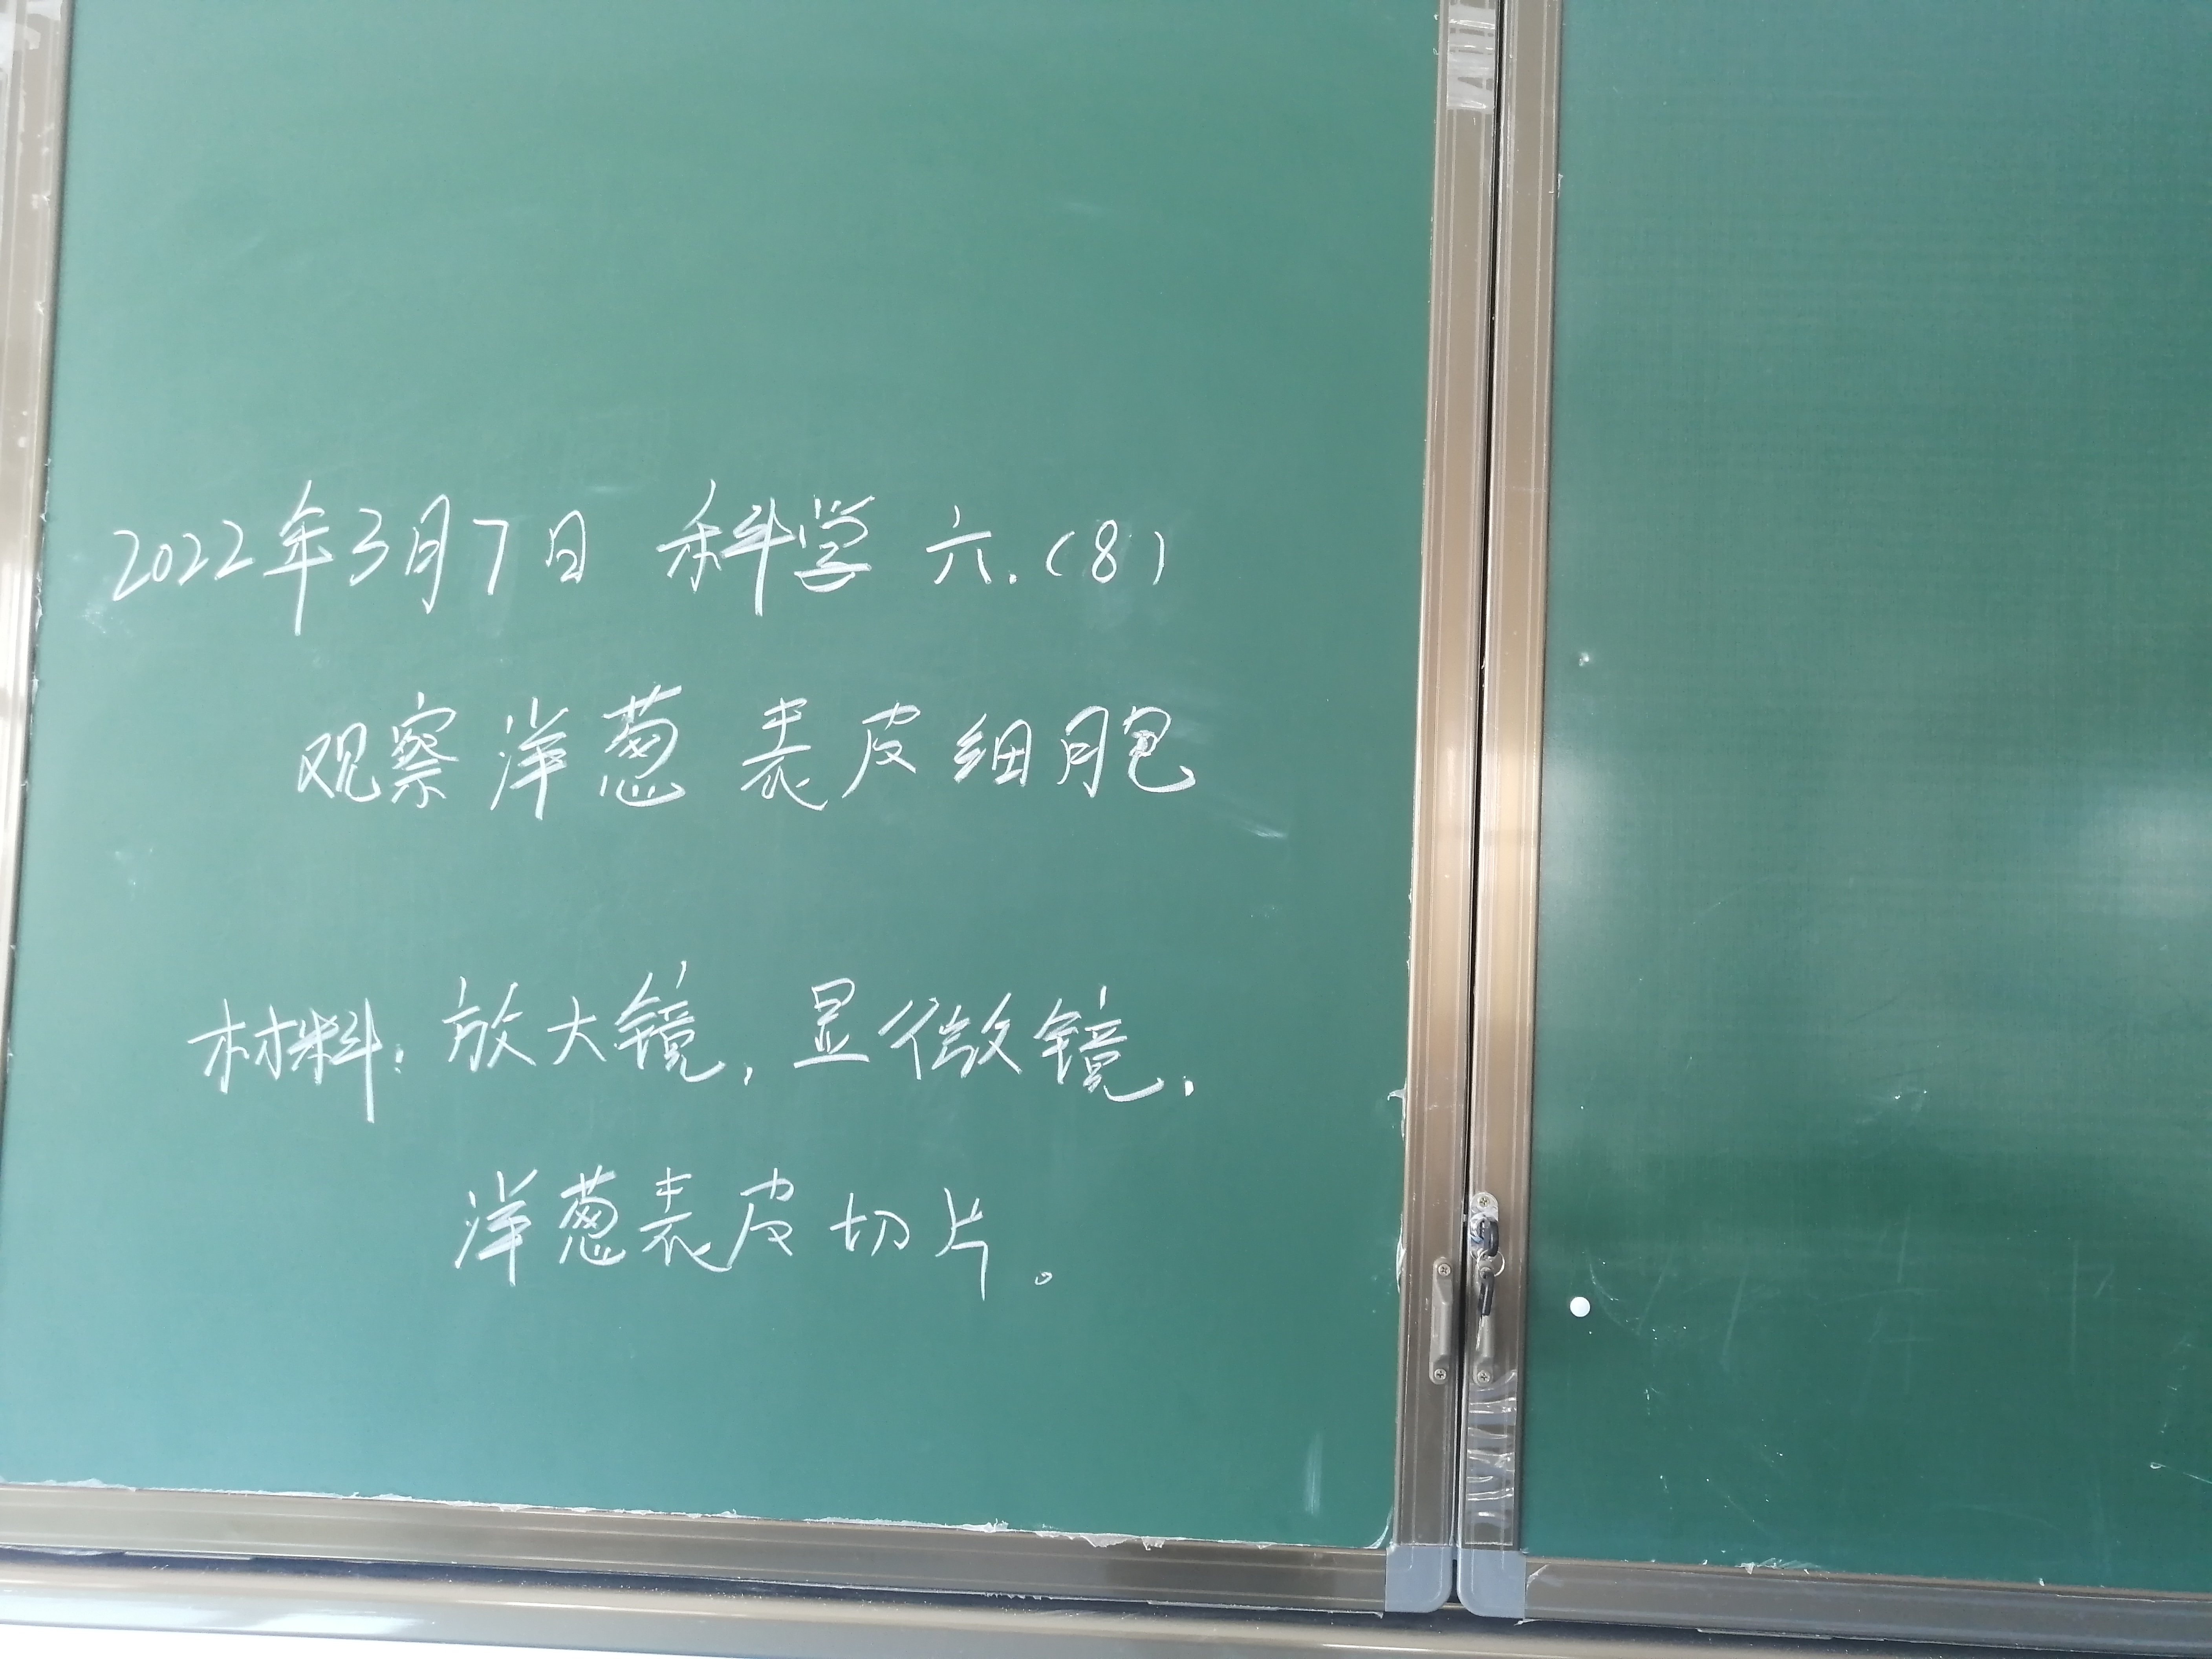 2022年3月7日 科学 六.(8)
观察洋葱表皮细胞
材料:放大镜,显微镜,
洋葱表皮切片。